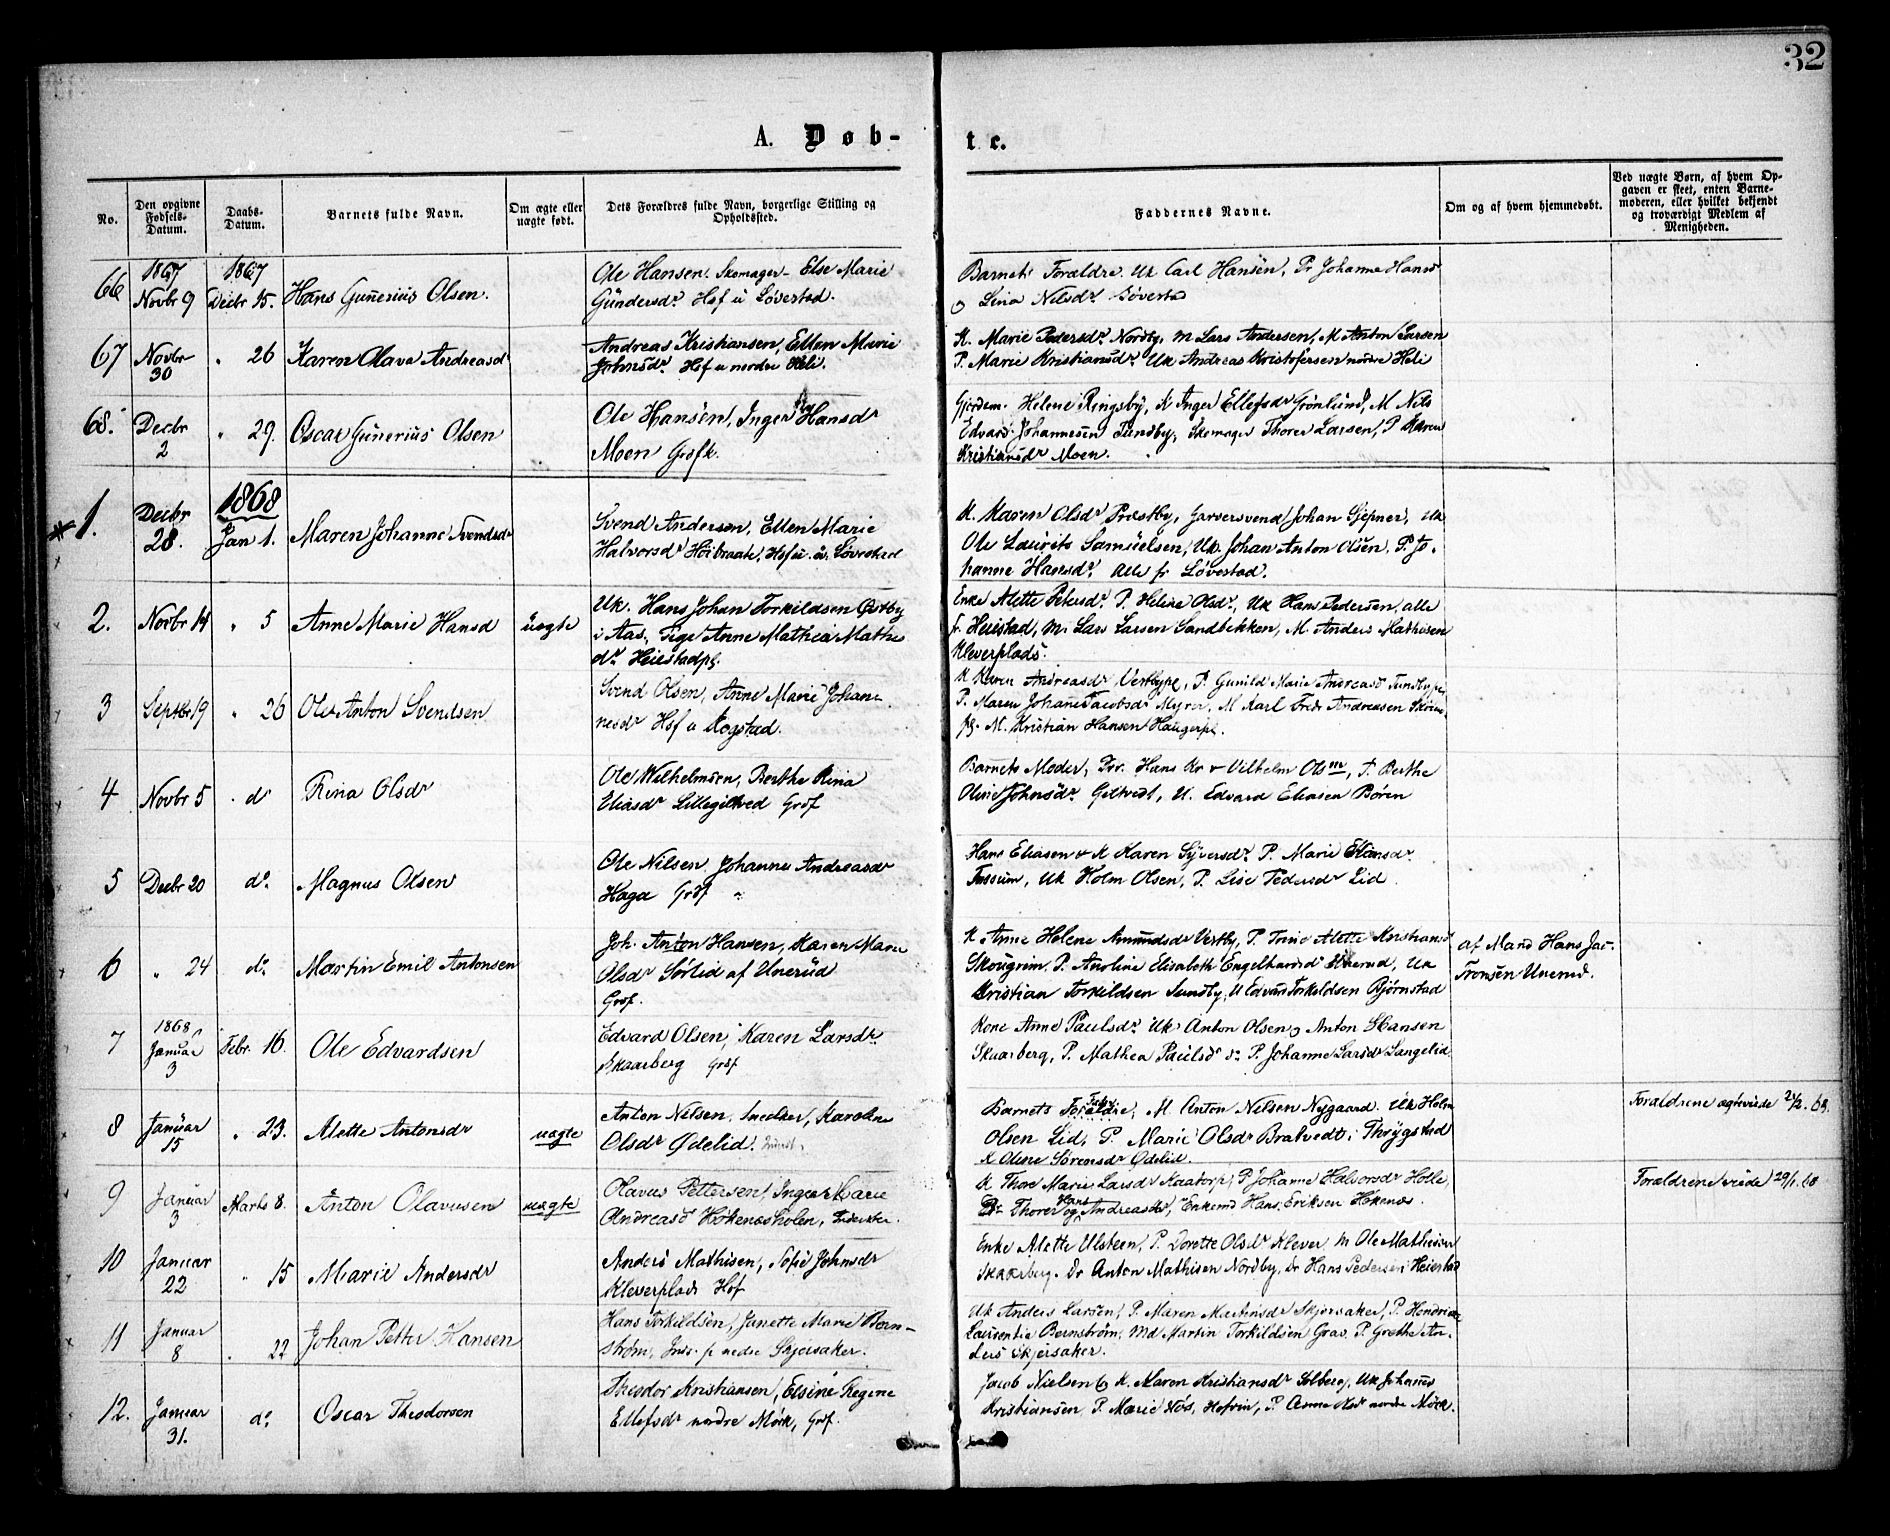 32
A. Døb-
te.
No.
Den opgivne Fødsels-Datum.
Daabs-Datum.
Barnets fulde Navn.
Om ægte eller uægte født.
Dets Forældres fulde Navn, borgerlige Stilling og Opholdssted.
Faddernes Navne.
Om og af hvem hjemmedøbt.
Ved uægte Børn, af hvem Opgaven er skeet, enten Barnemoderen, eller hvilket bekjendt og troværdigt Medlem af Menigheden.
66 1867 Novbr 9 1867 Decbr 15. Hans Gunerius Olsen.
Ole Hansen. Skomager - Else Marie
Gundersdr. Hsf u Løvestad.
Barnets Forældre. Uk Carl Hansen, P. Johanne Hansd
o Lina Nilsdr. Løvestad
67 Novbr 30 " 26 Karen Olava Andreasdr
Andreas Kristiansen, Ellen Marie
Johnsdr. Hsf u nordre Heli.
K. Marie Pedersdr. Nordby, M Lars Andersen, M Anton Larsen
P. Marie Kristiansdr. Uk Andreas Kristofersen nordre Heli
68. Decbr 2 " 29. Oscar Gunerius Olsen
Ole Hansen, Inger Hansdr
Moen Grdfk.
Gjordem. Helene Ringsby, K Inger Ellefsdr Grønlund, M Nils
Edvard Johannesen Sundby, Skomager Thorer Larsen, P Karen
Kristiansdr Moen.
1. Decbr 28. 1868 Jan 1. Maren Johanne Svendsdr
Svend Andersen, Ellen Marie
Halvorsdr Høibraate, Hsf u. Løvestad
K. Karen Olsdr Præstby, Garversvend Johan Sjepner, Uk
Ole Laurits Samuelsen, Uk. Johan Anton Olsen, P. Jo-
hanne Hansdr. alle fr Løvestad.
2. Novbr 14 " 5 Anne Marie Hansd uægte
Uk. Hans Johan Torkildsen Østby
i Aas, Pige Anne Mathea Mathe
dr Heiestadpl.
Enke Alette Petersdr. P. Helene Olsdr, Uk Hans Pedersen, alle
fr Heiestad, M. Lars Larsen Sandbekken, M. Anders Mathisen
Kleverplads.
3 Septbr 19 " 26 Ole Anton Svendsen
Svend Olsen, Anne Marie Johan
nesdr Hsf u Rogstad.
K Karen Andreasdr Vestbypl, P. Gunild Marie Andreasd Sundbypl
P. Maren Johanne Jacobsdr Myrer, M Karl Fredr Andreasen
pl. M. Kristian Hansen Haugerpl.
4 Novbr 5 " do Rina Olsdr
Ole Wilhelmsen, Berthe Rina
Eliasdr Lillegiltved Grdf
Barnets Moder, Hans Kr & Vilhelm Olsen, P. Berthe
Oline Johnsdr. Geltvedt, U. Edvard Eliasen Børen
5 Decbr 20 do. Magnus Olsen
Ole Nilsen Johanne Andreasdr
Haga Grdf
Hans Eliasen & K Karen Syversdr. P. Marie Hansdr.
Fossum, Uk Holm Olsen, P. Lise Pedersdr Lid
6 " 24 do. Martin Emil Antonsen
Joh. Anton Hansen, Karen Marie
Olsdr Sørlid af Unerud
Grdf.
K Anne Helene Amundsdr Vestby, P. Trine Alette Kristiansd
Skougrim. P. Anoline Elisabeth Engelhardsd Unerud, Uk
Kristian Torkildsen Sundby, U Edvard Torkildsen Bjørnstad
af Mand Hans Jac-
Tronsen Unerud.
7 1868 Januar 3 Febr. 16. Ole Edvardsen
Edvard Olsen, Karen Larsdr
Skaarberg Grdf
Kone Anne Paulsdr. Uk Anton Olsen og Anton Hansen
Skaarberg, P. Mathea Paulsd do P. Johanne Larsdr Langelid
8 Januar 15 " 23. Alette Antonsdr uægte
Anton Nilsen, Snedker, Karoline
Olsdr Ødelid.
Barnets Forældre, M. Anton Nilsen Nygaard. Uk Holm
Olsen Lid, P. Marie Olsdr Bratvedt i Thrygstad
K Oline Sørensdr Ødelid.
Forældrene ægteviede 21/2. 69.
9 Januar 3 Marts 8. Anton Olavusen uægte
Olavus Pettersen, Inger Marie
Andreasd Høkenæsholen, Inderster.
K Thore Marie Larsdr Kaatorp, P Johanne Halvorsdr Holle
Dr Thorer og Hans Andreasdr, Enkemd Hans Eriksen Høkenæs.
Forældrene viede 29/1. 68
10 Januar 22 " 15 Marie Andersdr
Anders Mathisen, Sofie Johnsdr
Kleverplads Hsf
Enke Alette Ulsteen, P. Dorette Olsdr Klever M Ole Mathisen
Skaarberg. Dr Anton Mathisen Nordby, Dr Hans Pedersen Heiestad
11 Januar 8 " 22 Johan Petter Hansen
Hans Torkildsen, Janette Marie Bern-
strøm, Inds. p nedre Skjersaker.
Uk Anders Larsen, P. Maren Martinsdr Skjersaker, P. Hendrikke
Laurentia Bernstrøm, Md Martin Torkildsen Grav, P. Grethe An-
ders Skjersaker.
12. Januar 31. do. Oscar Theodorsen
Theodor Kristiansen, Elsine Regine
Ellefsdr nordre Mørk, Grdf.
Jacob Nielsen & K. Maren Kristiansdr Solberg, Uk Johannes
Kristiansen, P. Marie Høs, Hofvin, P. Anne nordre Mørk.